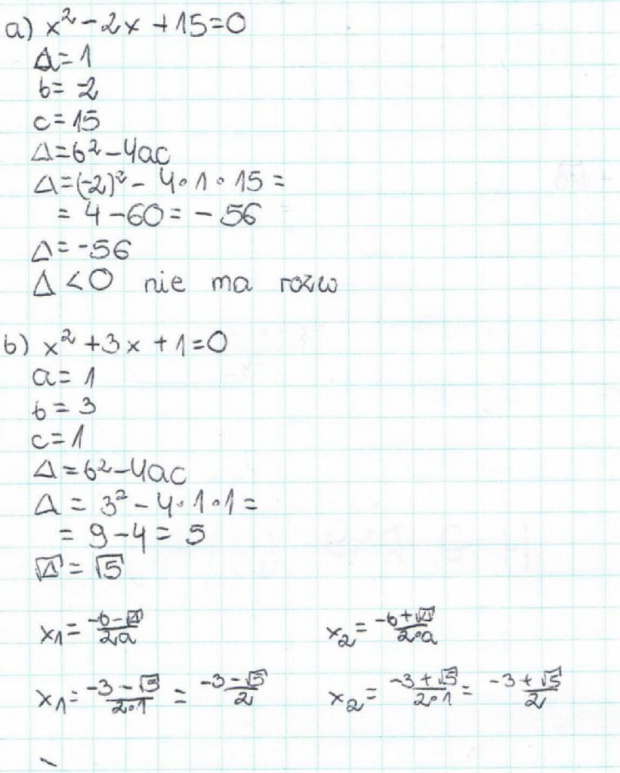 a) x² - 2x + 15 = 0
Δ = 1
b = -2
c = 15
Δ = b² - 4ac
Δ = (-2)² - 4・1・15 =
= 4 - 60 = - 56
Δ = -56
Δ < 0 nie ma rozw
b) x² + 3x + 1 = 0
a = 1
b = 3
c = 1
Δ = b² - 4ac
Δ = 3² - 4・1・1 =
= 9 - 4 = 5
√Δ = √5
x₁ = (-b-√Δ)/(2a) x₂ = (-b+√Δ)/(2・a)
x₁ = (-3-√5)/(2・1) = (-3-√5)/2 x₂ = (-3+√5)/(2・1) = (-3+√5)/2